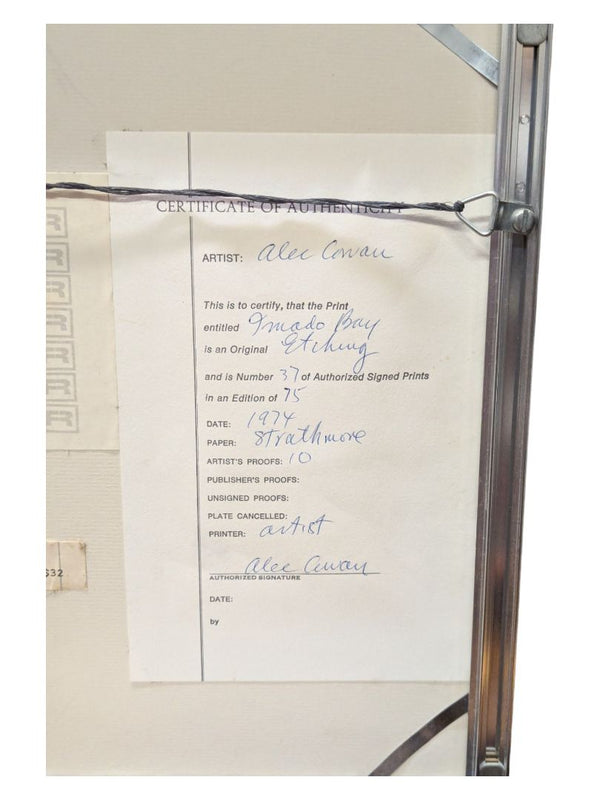 CERTIFICATE OF AUTHENTICITY
ARTIST: Alec Cowan
This is to certify, that the Print
entitled Imado Bay
is an Original Etching
and is Number 37 of Authorized Signed Prints
in an Edition of 75
DATE: 1974
PAPER: Strathmore
ARTIST'S PROOFS: 10
PUBLISHER'S PROOFS:
UNSIGNED PROOFS:
PLATE CANCELLED:
PRINTER: artist
Alec Cowan
AUTHORIZED SIGNATURE
DATE:
by
S32